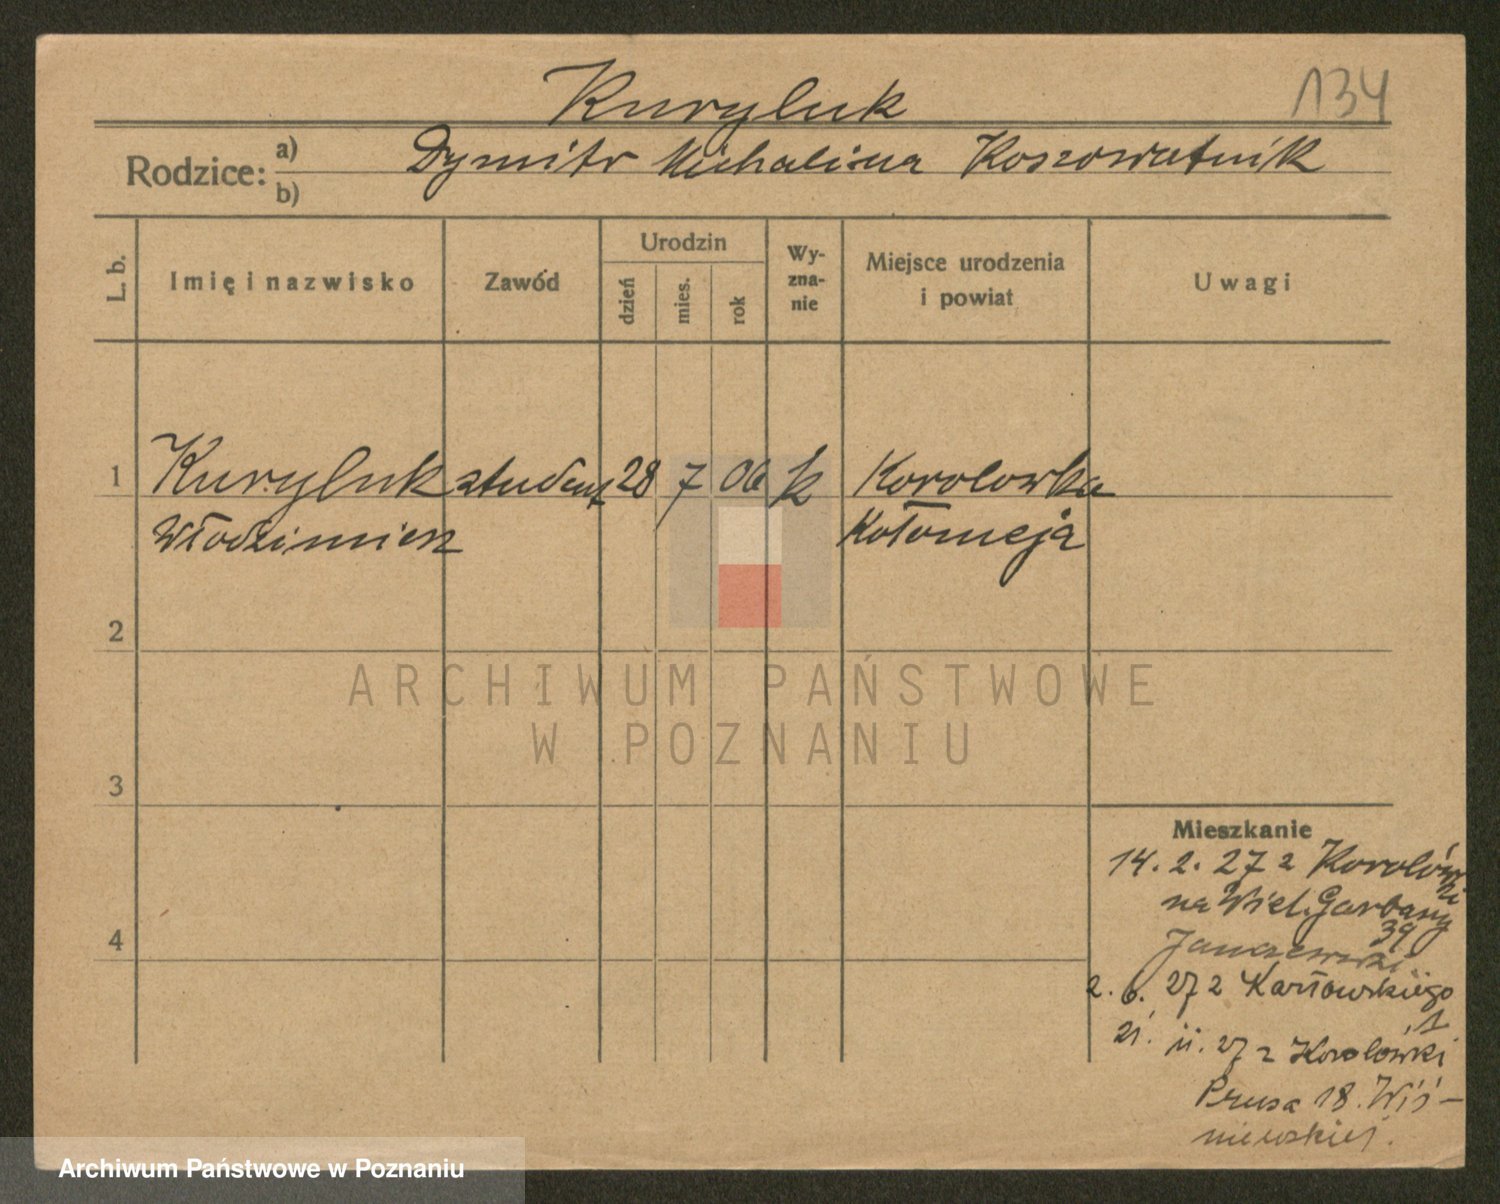 Kuryluk
134
Rodzice: a) Dymitr Michalina Koszowatnik
b)
L. b.
Imię i nazwisko
Zawód
Urodzin
dzień
mies.
rok
Wy-
zna-
nie
Miejsce urodzenia
i powiat
Uwagi
1 Kuryluk student 28 7 06 k Korolowka
Włodzimierz Kołomeja
2
3
4
ARCHIWUM PAŃSTWOWE
W POZNANIU
Mieszkanie
14. 2. 27 z Korolówki
na Wiel. Garbary
39
Janczewski
2. 6. 27 z Karłowskiego
1
21. 11. 27 z Korolówki
Prusa 18. Wiś-
niewskiej.
Archiwum Państwowe w Poznaniu